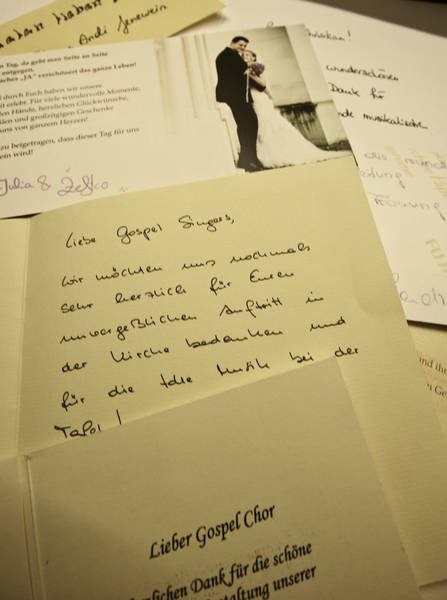 Andi Jenewein
Tag, da geht man Seite an Seite
entgegen,
"JA" verschönert das ganze Leben!
durch Euch haben wir unsere
erlebt. Für viele wundervolle Momente,
den Hände, herzlichen Glückwünsche,
und großzügigen Geschenke
uns von ganzem Herzen!
zu beigetragen, dass dieser Tag für uns
ein wird!
Julia & Željko
wunderschöne
Dank für
musikalische
die
Trauung
Liebe Gospel Singers,
wir möchten uns nochmals
sehr herzlich für Euren
unvergeßlichen Auftritt in
der Kirche bedanken und
für die tolle Musik bei der
Tafel!
und ihr
Lieber Gospel Chor
lichen Dank für die schöne
staltung unserer